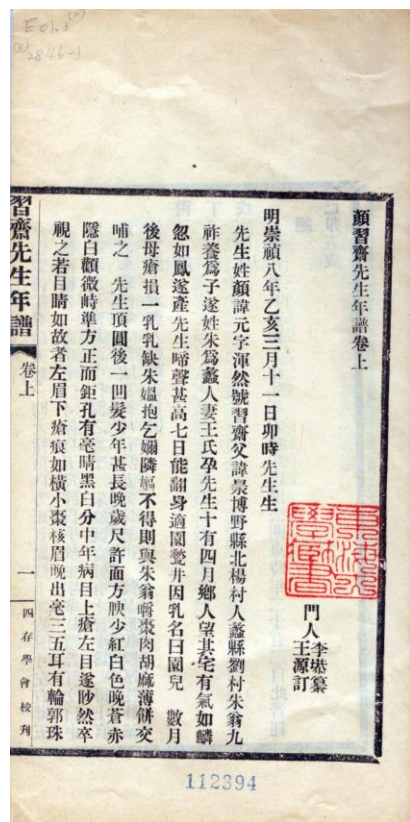 顏習齋先生年譜卷上
門人李塨纂
王源訂
明崇禎八年乙亥三月十一日卯時先生生
先生姓顏諱元字渾然號習齋父諱㫤博野縣北楊村人蠡縣劉村朱翁九
祚養爲子遂姓朱爲蠡人妻王氏孕先生十有四月鄉人望其宅有氣如麟
忽如鳳遂產先生啼聲甚高七日能翻身適園甃井因乳名曰園兒 數月
後母瘡損一乳乳缺朱媼抱乞嬭隣嫗不得則與朱翁嚼棗肉胡麻薄餅交
哺之 先生頂圓後一凹髮少年甚長晚歲尺許面方腴少紅白色晚蒼赤
隱白顴微峙準方正而鉅孔有毫睛黑白分中年病目上瘡左目遂眇然卒
視之若目睛如故者左眉下瘡痕如橫小棗核眉晚出毫三五耳有輪郭珠
習齋先生年譜
卷上
一
四存學會校刊
112394